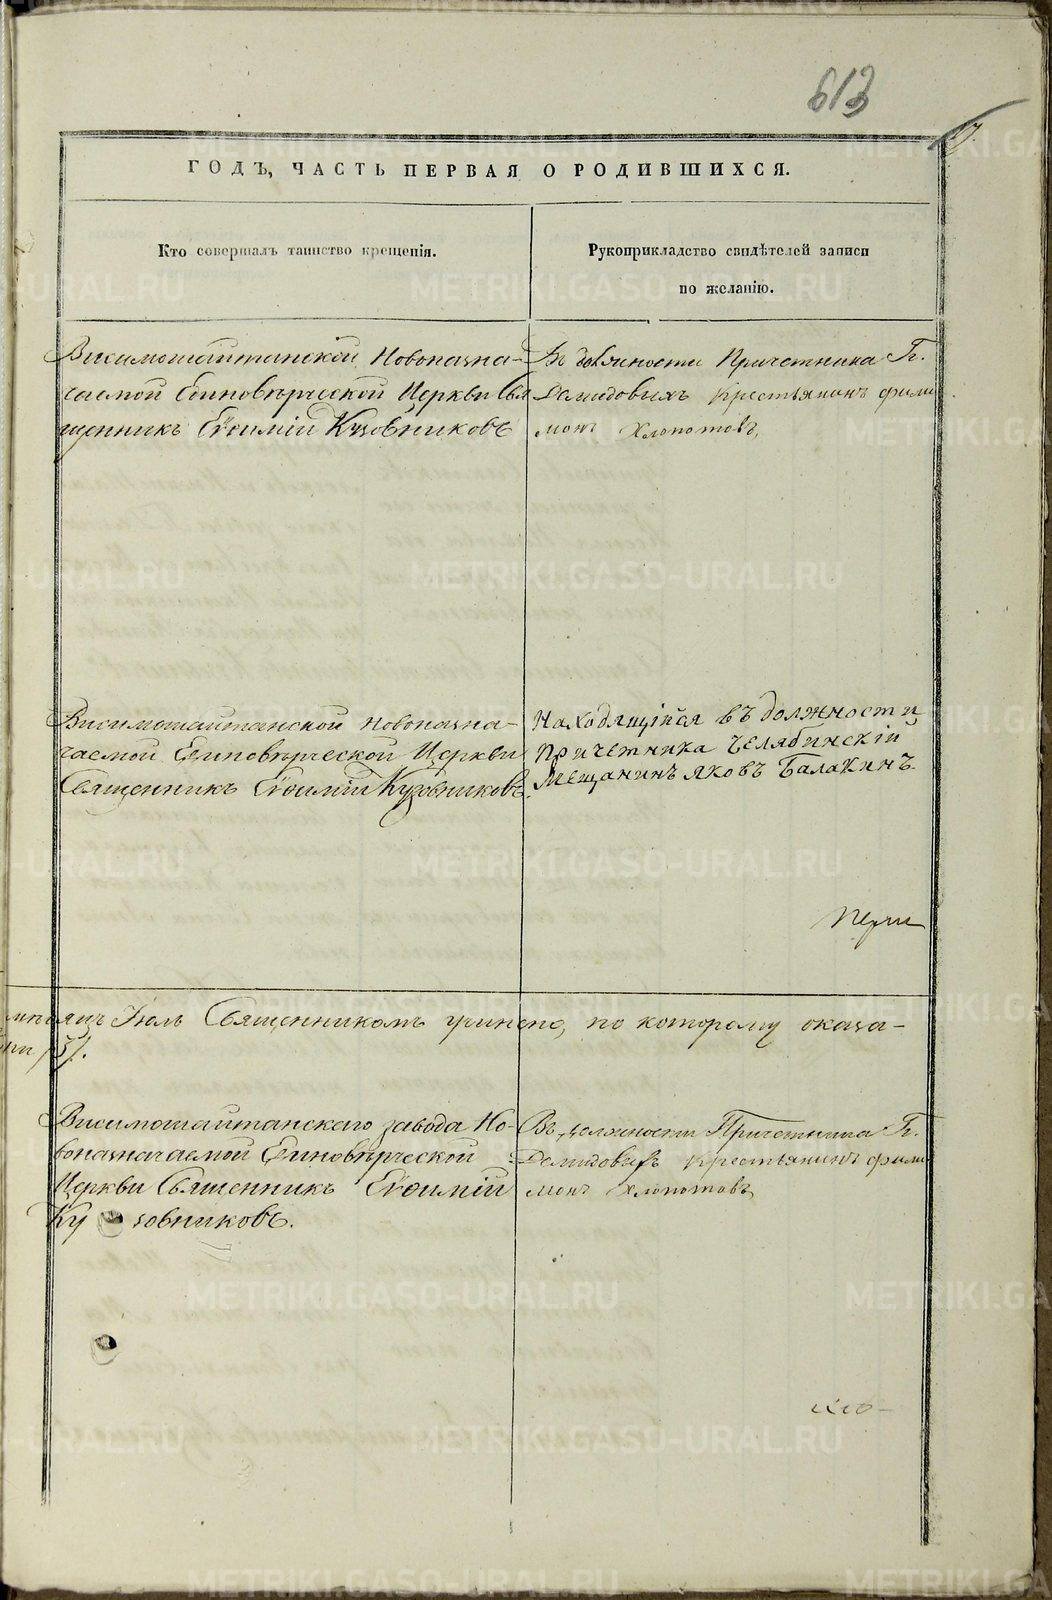 613
ГОДЪ, ЧАСТЬ ПЕРВАЯ О РОДИВШИХСЯ.
Кто совершалъ таинство крещенія.
Рукоприкладство свидѣтелей записи
по желанію.
Висимошайтанской Новоназна-
чаемой Единовѣрческой Церкви Свя
щенникъ Евѳимій Кузовниковъ
Въ должности Причетника Гг.
Демидовыхъ крестьянинъ Фили
монъ Хлопотовъ,
Висимошайтанской новоназна-
чаемой Единовѣрческой Церкви
Священникъ Евѳимій Кузовниковъ.
Находящійся въ должности
Причетника Челябинскій
Мещанинъ Яковъ Балакинъ.
Іюль Священникомъ чинено, по которому оказа-
Висимошайтанскаго завода Но-
воназначаемой Единовѣрческой
Церкви Священникъ Евѳимій
Кузовниковъ.
Въ должности Причетника Гг.
Демидовыхъ крестьянинъ Фили
монъ Хлопотовъ
METRIKI.GASO-URAL.RU